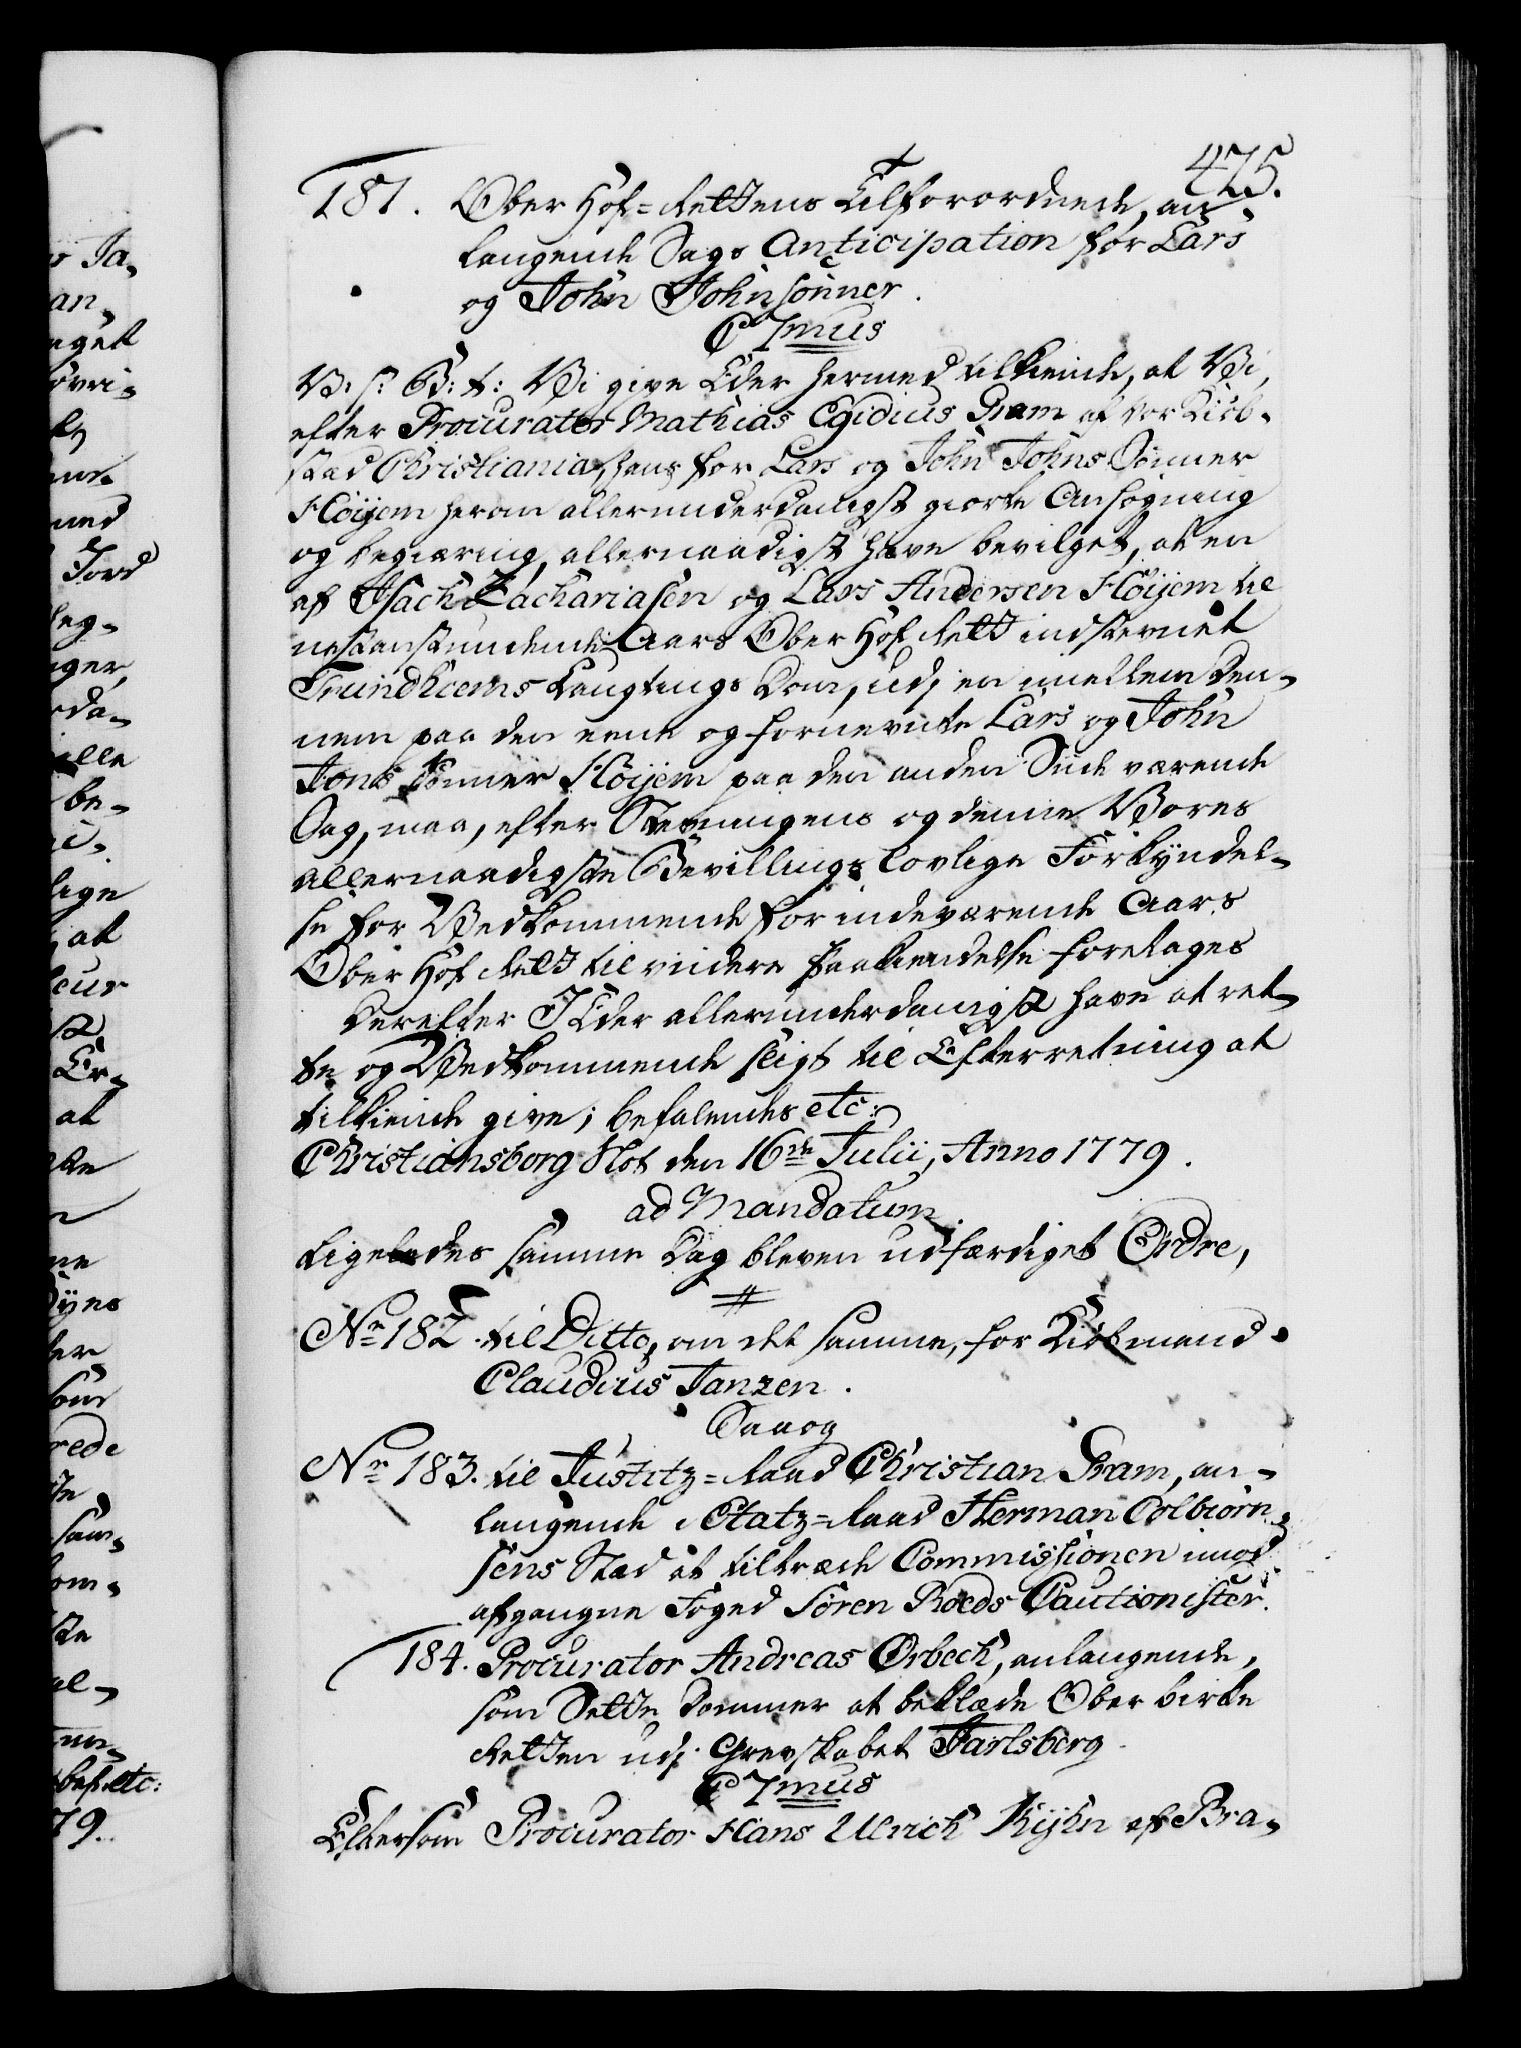 475.
181. Ober Hof-Rettens Tilforordnede, an-
langende Sags Anticipation for Lars
og John Johnsønner.
C 7mus
V: s: G: t: Vi give Eder hermed tilkiende, at Vi,
efter Procurator Mathias Egidius Pram af vor Kiøb-
stad Christiania, hans for Lars og John Johns Sønner
Høijem herom allerunderdanigst giorte Ansøgning
og begiæring, allernaadigst have bevilget, at en
af Isach Zachariasen og Lars Andersen Høijem til
nestanstundende Aars Ober Hof Rett indstevnet
Trundhiems Laugtings Dom, udj en imellem den-
nem paa den eene og fornevnte Lars og John
Jons Sønner Høijem paa den anden Side værende
Sag, maa, efter Stevningens og denne Vores
allernaadigste Bevillings lovlige Forkyndel-
se for Vedkommende for indeværende Aars
Ober Hof Rett til videre Paakiendelse foretages
Derefter I Eder allerunderdanigst have at ret-
te og Vedkommende sligt til Efterretning at
tilkiende give; befalendes etc:
Christiansborg Slot den 16de Julii, Anno 1779.
ad Mandatum.
Ligeledes samme Dag bleven udfærdiget Ordre,
Nr 182. til Ditto, om det samme, for Kiøbmand
Claudius Janzen.
Saaog
Nr 183. til Justitz-Raad Christian Pram, an-
langende i Etatz-Raad Herman Colbiørn-
sens Sted at tiltræde Commissionen imod
afgangne Foged Søren Roeds Cautionister.
184. Procurator Andreas Ørbech, anlangende,
som Sette Dommer at beklæde Ober birke
Retten udj Grevskabet Jarlsberg.
C 7mus
Eftersom Procurator Hans Ulrich Kyhn af Bra-